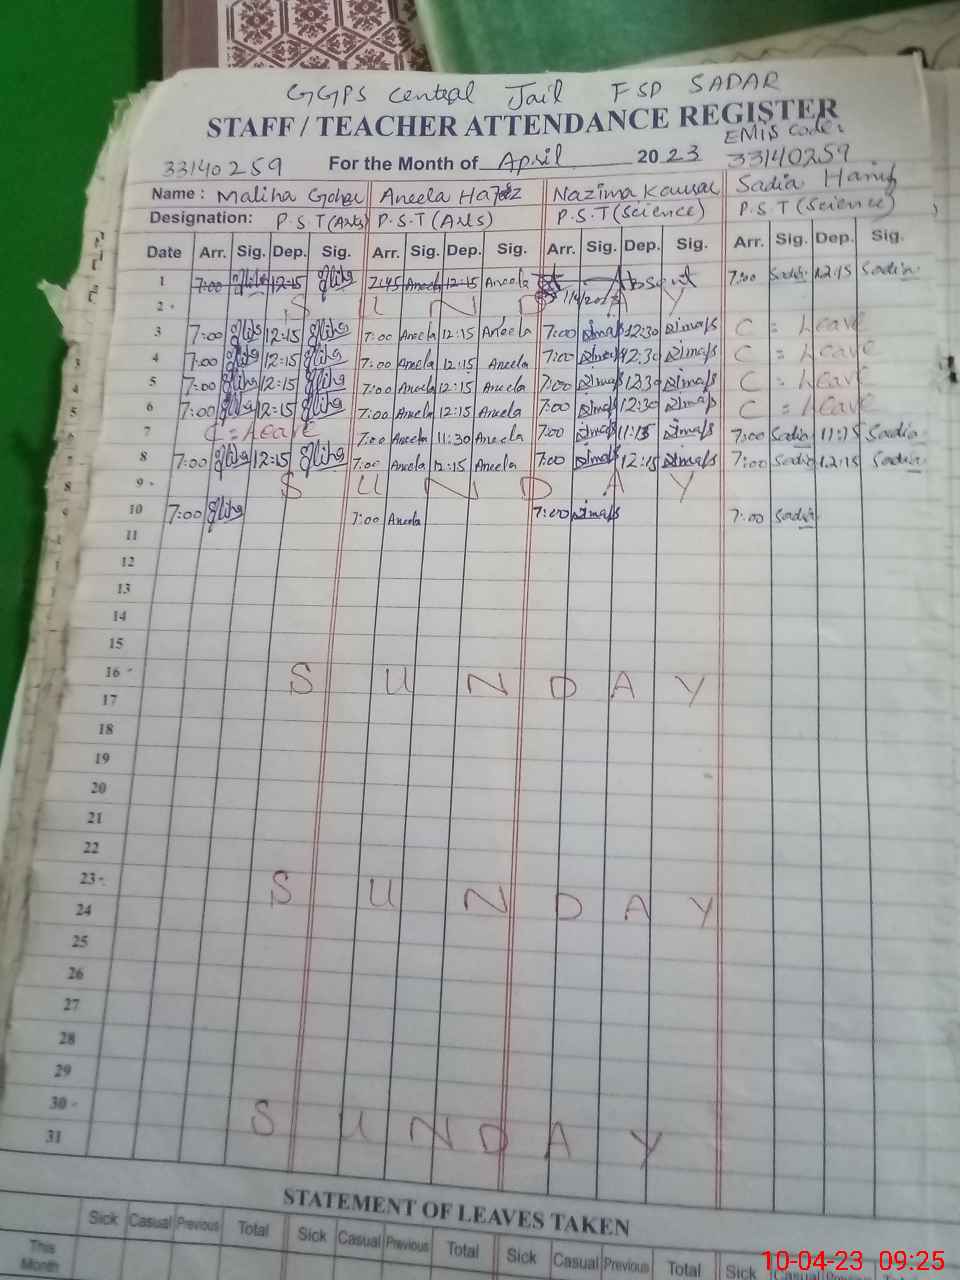 GGPS Central Jail FSD SADAR
STAFF / TEACHER ATTENDANCE REGISTER
EMIS Code:
33140259 For the Month of April 2023 33140259
Name: Maliha Gohar Aneela Hafeez Nazima Kausar Sadia Hanif
Designation: P.S.T (Arts) P.S.T (Arts) P.S.T (Science) P.S.T (Science)
Date Arr. Sig. Dep. Sig. Arr. Sig. Dep. Sig. Arr. Sig. Dep. Sig. Arr. Sig. Dep. Sig.
1 7:00 12:15 7:45 Aneela 12:15 Aneela Absent 7:00 Sadia 12:15 Sadia
1/4/2023
2 S U N D A Y
3 7:00 12:15 7:00 Aneela 12:15 Aneela 7:00 12:30 C = Leave
4 7:00 12:15 7:00 Aneela 12:15 Aneela 7:00 12:30 C = Leave
5 7:00 12:15 7:00 Aneela 12:15 Aneela 7:00 12:30 C = Leave
6 7:00 12:15 7:00 Aneela 12:15 Aneela 7:00 12:30 C = Leave
7 C = Leave 7:00 Aneela 11:30 Aneela 7:00 11:15 7:00 Sadia 11:15 Sadia
8 7:00 12:15 7:00 Aneela 12:15 Aneela 7:00 12:15 7:00 Sadia 12:15 Sadia
9 S U N D A Y
10 7:00 7:00 Aneela 7:00 7:00 Sadia
11
12
13
14
15
16 S U N D A Y
17
18
19
20
21
22
23 S U N D A Y
24
25
26
27
28
29
30 S U N D A Y
31
STATEMENT OF LEAVES TAKEN
Sick Casual Previous Total Sick Casual Previous Total Sick Casual Previous Total Sick Casual Previous
This Month
10-04-23 09:25